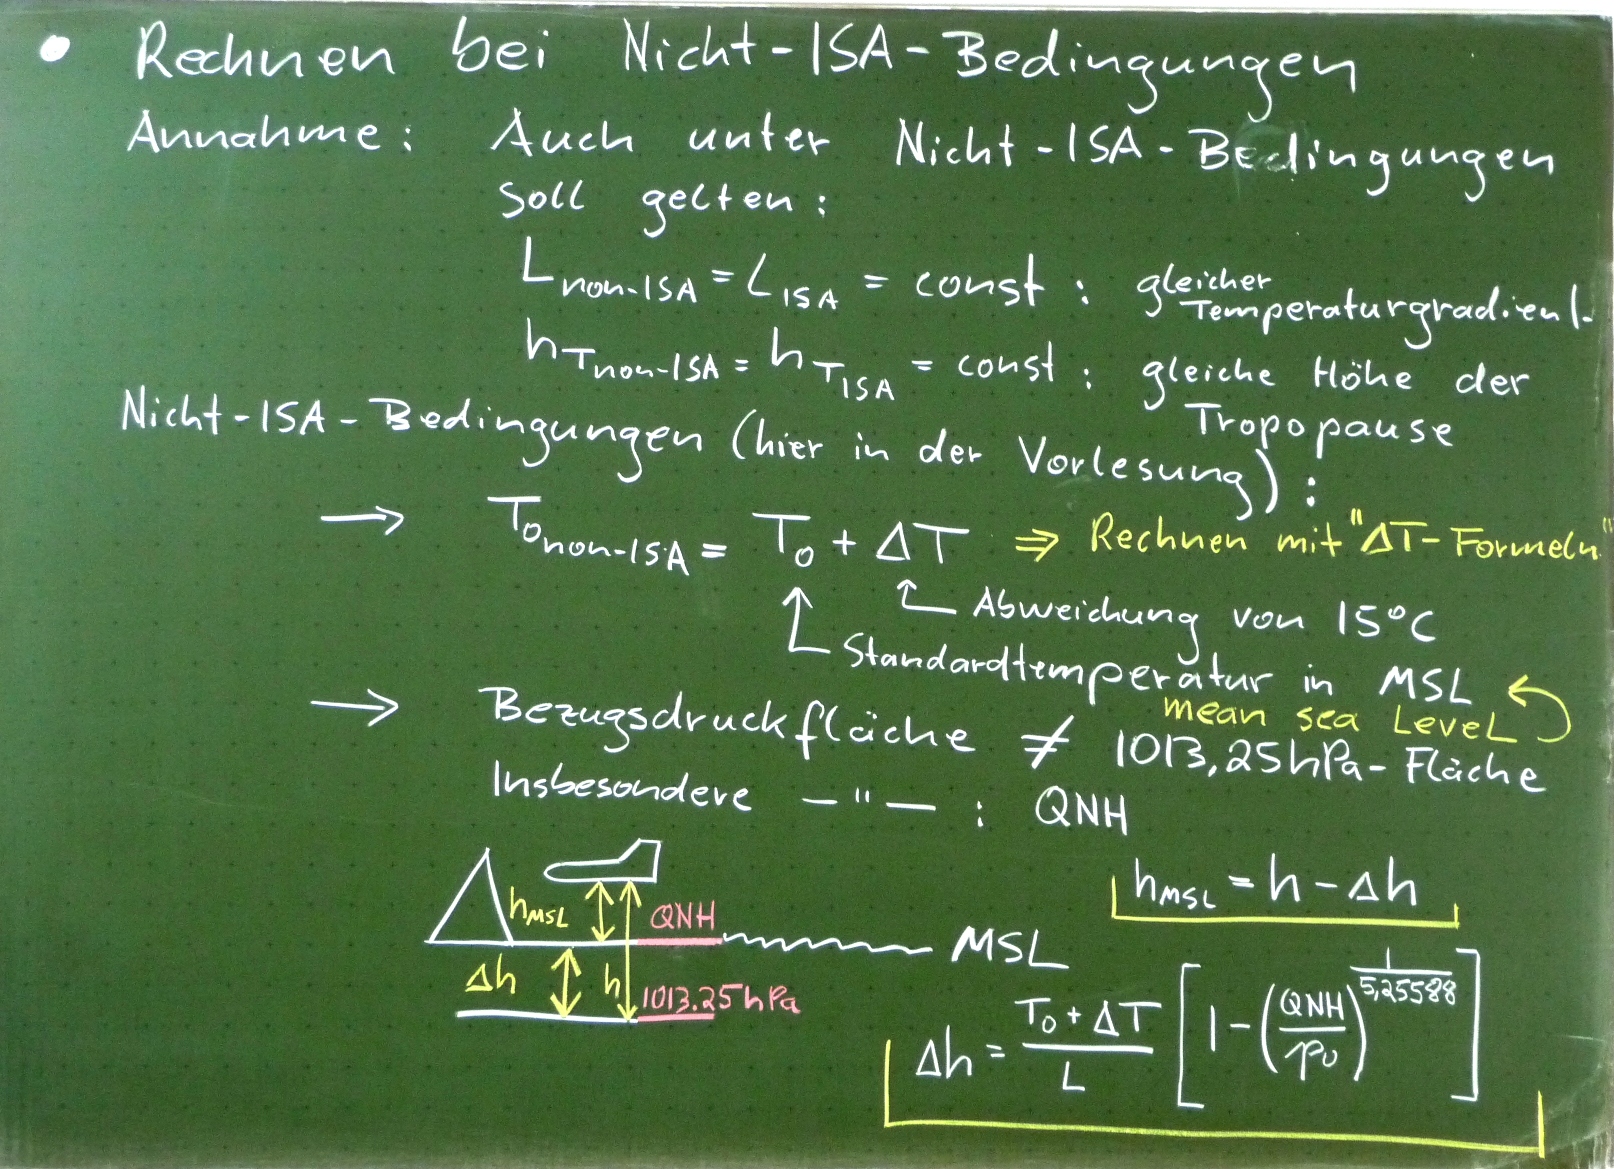 • Rechnen bei Nicht-ISA-Bedingungen
Annahme: Auch unter Nicht-ISA-Bedingungen
soll gelten:
L_non-ISA = L_ISA = const : gleicher
Temperaturgradient.
h_T_non-ISA = h_T_ISA = const : gleiche Höhe der
Tropopause
Nicht-ISA-Bedingungen (hier in der Vorlesung):
→ T_0_non-ISA = T_0 + ΔT ⇒ Rechnen mit "ΔT-Formeln"
Abweichung von 15°C
Standardtemperatur in MSL
mean sea Level
→ Bezugsdruckfläche ≠ 1013,25hPa-Fläche
Insbesondere —"— : QNH
h_MSL = h - Δh
h_MSL QNH
MSL
Δh h 1013.25hPa
Δh = (T_0 + ΔT)/L [1 - (QNH/p_0)^(1/5,25588)]